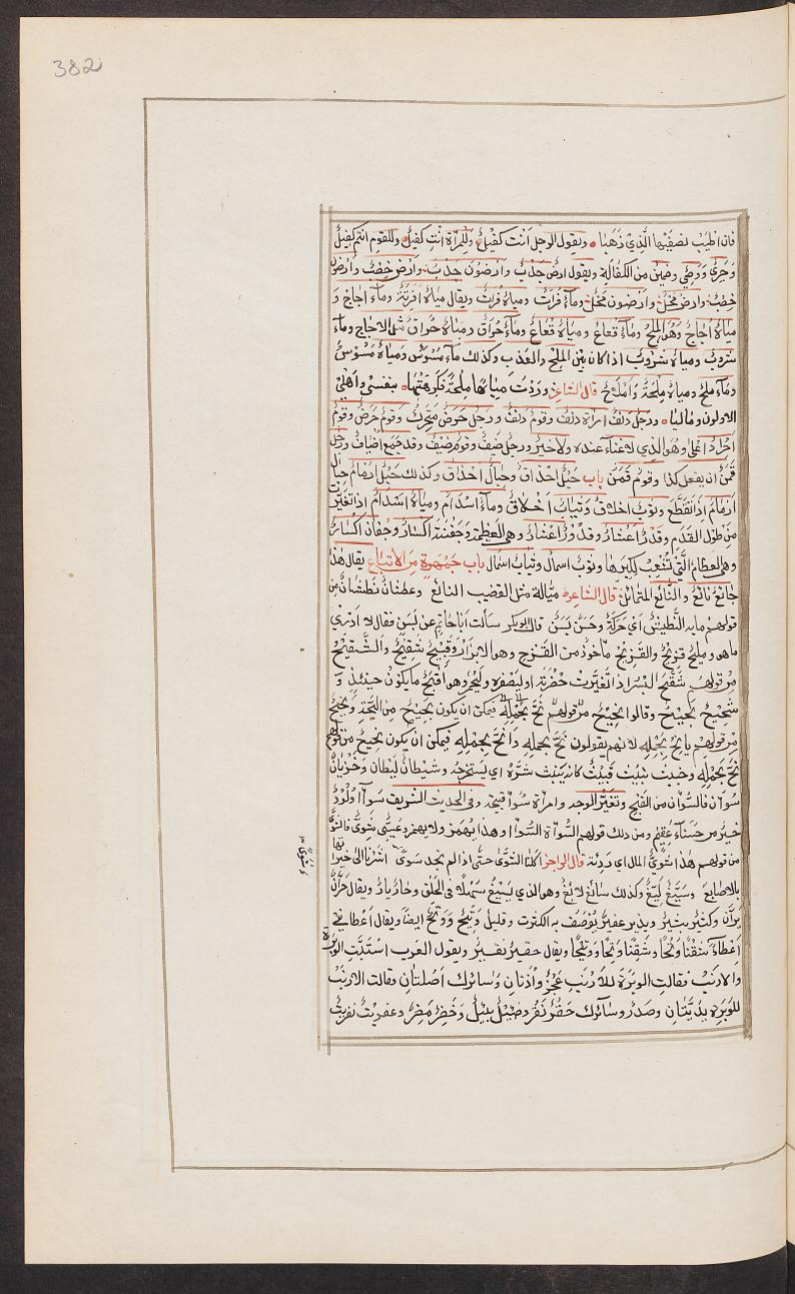 382
فان اطيب نصفيها الذي ذهبا ۞ ويقول الرجل انت كفيل وللمراة انت كفيل وللقوم انتم كفيل
وجرى ووصي وضين من الكفالة ويقول ارض جدب وارضون جدب وارض خصب وارضون
خصب وارض محل وارضون محل وماء فرات ومياه فرات ويقال مياه افرتة وماء اجاج و
مياه اجاج وهو الملح وماء قعاع ومياه قعاع وماء حراق ومياه حراق مثل الاجاج وماء
شروب ومياه شروب اذا كان بين الملح والعذب وكذلك ماء مسوس ومياه مسوس
وماء ملح ومياه ملحة واملاح قال الشاعر وردت مياها ملحة فكرهتها ۞ بنفسي واهلي
الاولون وماليا ۞ ورجل دنف امراة دنف وقوم دنف ورجل حرض وقوم حرض وقوم
احراد اغلى وهو الذي لا غناء عنده ولا خير ورجل ضيف وقوم ضيف وقد جمع اضياف ورجل
قمن ان يفعل كذا وقوم قمن باب حبل احذاق وحبال احذاق وكذلك حبل ارمام حبال
ارمام اذا تقطع وثوب اخلاق وثياب اخلاق وماء اسدام ومياه اسدام اذا تغيرت
من طول القدم وقدر اعشار وقدور اعشار وهي العظيمة وجفنة اكسار وجفان اكسار
وهي العظام التي تشعب لكبرها وثوب اسمال وثياب اسمال باب جمهرة من الاتباع يقال هذا
جائع نائع والنائع المتمائل قال الشاعر متالة مثل القضيب النائع وعطشان نطشان من
قولهم ما به النطيش اي حركة وحسن بسن قال ابوبكر سالت ابا حاتم عن بسن فقال لا ادري
ما هو ومليح قزيح والقزيح ماخوذ من القزح وهو الابزار وقبيح شقيح والشقيح
من قولهم شقح البسر اذا تغيرت خضرته او ليصفر وليحمر وهو اقبح ما يكون حينئذ و
شحيح بحيح وقالوا نحيح من قولهم نح بحمله فيمكن ان يكون بحيح من البحة ونحيح
من قولهم ياتح بحمله لانهم يقولون نح بحمله وانح بحمله فيمكن ان يكون نحيح من قولهم
نح بحمله وخبيث نبيث كانه ينبث شره اي يستخرجه وشيطان ليطان وخزيان
سوان فالسوان من القبح وتغير الوجه وامراة سوآ قبيحة وفي الحديث الشريف سوآ ولود
خير من حسناء عقيم ومن ذلك قولهم السوأة السوآ وهذا يهمز ولا يهمز وعيي شوي فالشوي
وشوي
من قولهم هذا شوي المال اي رديئه قال الراجز اكلنا الشوى حتى اذا لم نجد سوى اشرنا الى خيراتها
بالاصابع وسيغ ليغ وكذلك سائغ لائغ وهو الذي يسيغ سهلا في الحلق وحار يار ويقال حران
يران وكثير بثير وبذير عفير يوصف به الكثرت وقليل وتيح ووتح ايضا ويقال اعطاني
اعطاء شقنا وتحا وشقنا وتحا ووتيحا ويقال حقير نقير ويقول العرب استبت الوبرة
والارنب فقالت الوبرة للارنب عجز واذنان وسائرك اصلتان وقالت الارنب
للوبرة يديتان وصدر وسائرك حقر نقر وضئيل بئيل وخضر مضر وعفريت نفريت